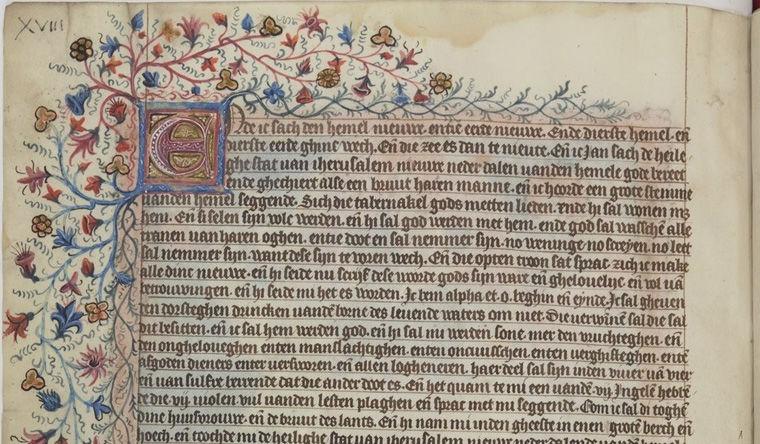 XVIII
Ende ic sach den hemel nieuwe. entie eerde nieuwe. Ende dierste hemel. eñ
dierste eerde ghinc wech. Eñ die zee es dan te nieute. Eñ ic Jan sach de heile
ghe stat uan iherusalem nieuwe neder dalen uanden hemele gode bereet
ende ghechiert alse een bruut haren manne. eñ ic hoorde een grote stemme
uanden hemel seggende. Sich die tabernakel gods metten lieden. Ende hi sal wonen mz
hem. Eñ si selen sijn volc werden. eñ hi sal god werden met hem. ende god sal wasschē alle
tranen uan haren oghen. entie doot en sal nemmer sijn. no weninge no screyen. no leet
sal nemmer sijn. want dese sijn te voren wech. Eñ die opten troon sat sprac. zich ic make
alle dinc nieuwe. eñ hi seide mi scrijf dese worde gods sijn ware eñ ghelouelijc. eñ vol uā
betrouwingen. eñ hi seide mi het es worden. Jc bem alpha et o. beghin eñ eynde. Jc sal gheuen
den dorsteghen drincken uandē borne des leuende waters om niet. Die verwinnē sal die sal
dit besitten. eñ ic sal hem werden god. eñ hi sal mi werden sone. mer den vruchteghen. eñ
den onghelouegheu enten manslachtighen. enten oncuusschen. enten uerghiftleghen. entē
afgoden dieners enter verworen. eñ allen logheneren. haer deel sal sijn inden viuer uā vier
eñ van sulfre berrende dat die ander doot es. Eñ het quam te mi een uandē. vij. Jngelē hebbē
de die. vij. uiolen vul uanden lesten plaghen eñ sprac met mi seggende. Com ic sal di toghē
dine huusvrouwe. eñ de bruut des lants. Eñ hi nam mi inden gheeste in enen grotē berch eñ
hoech. eñ toochde mi de heilighe stat uan iherusalem nieuwe neder dalende